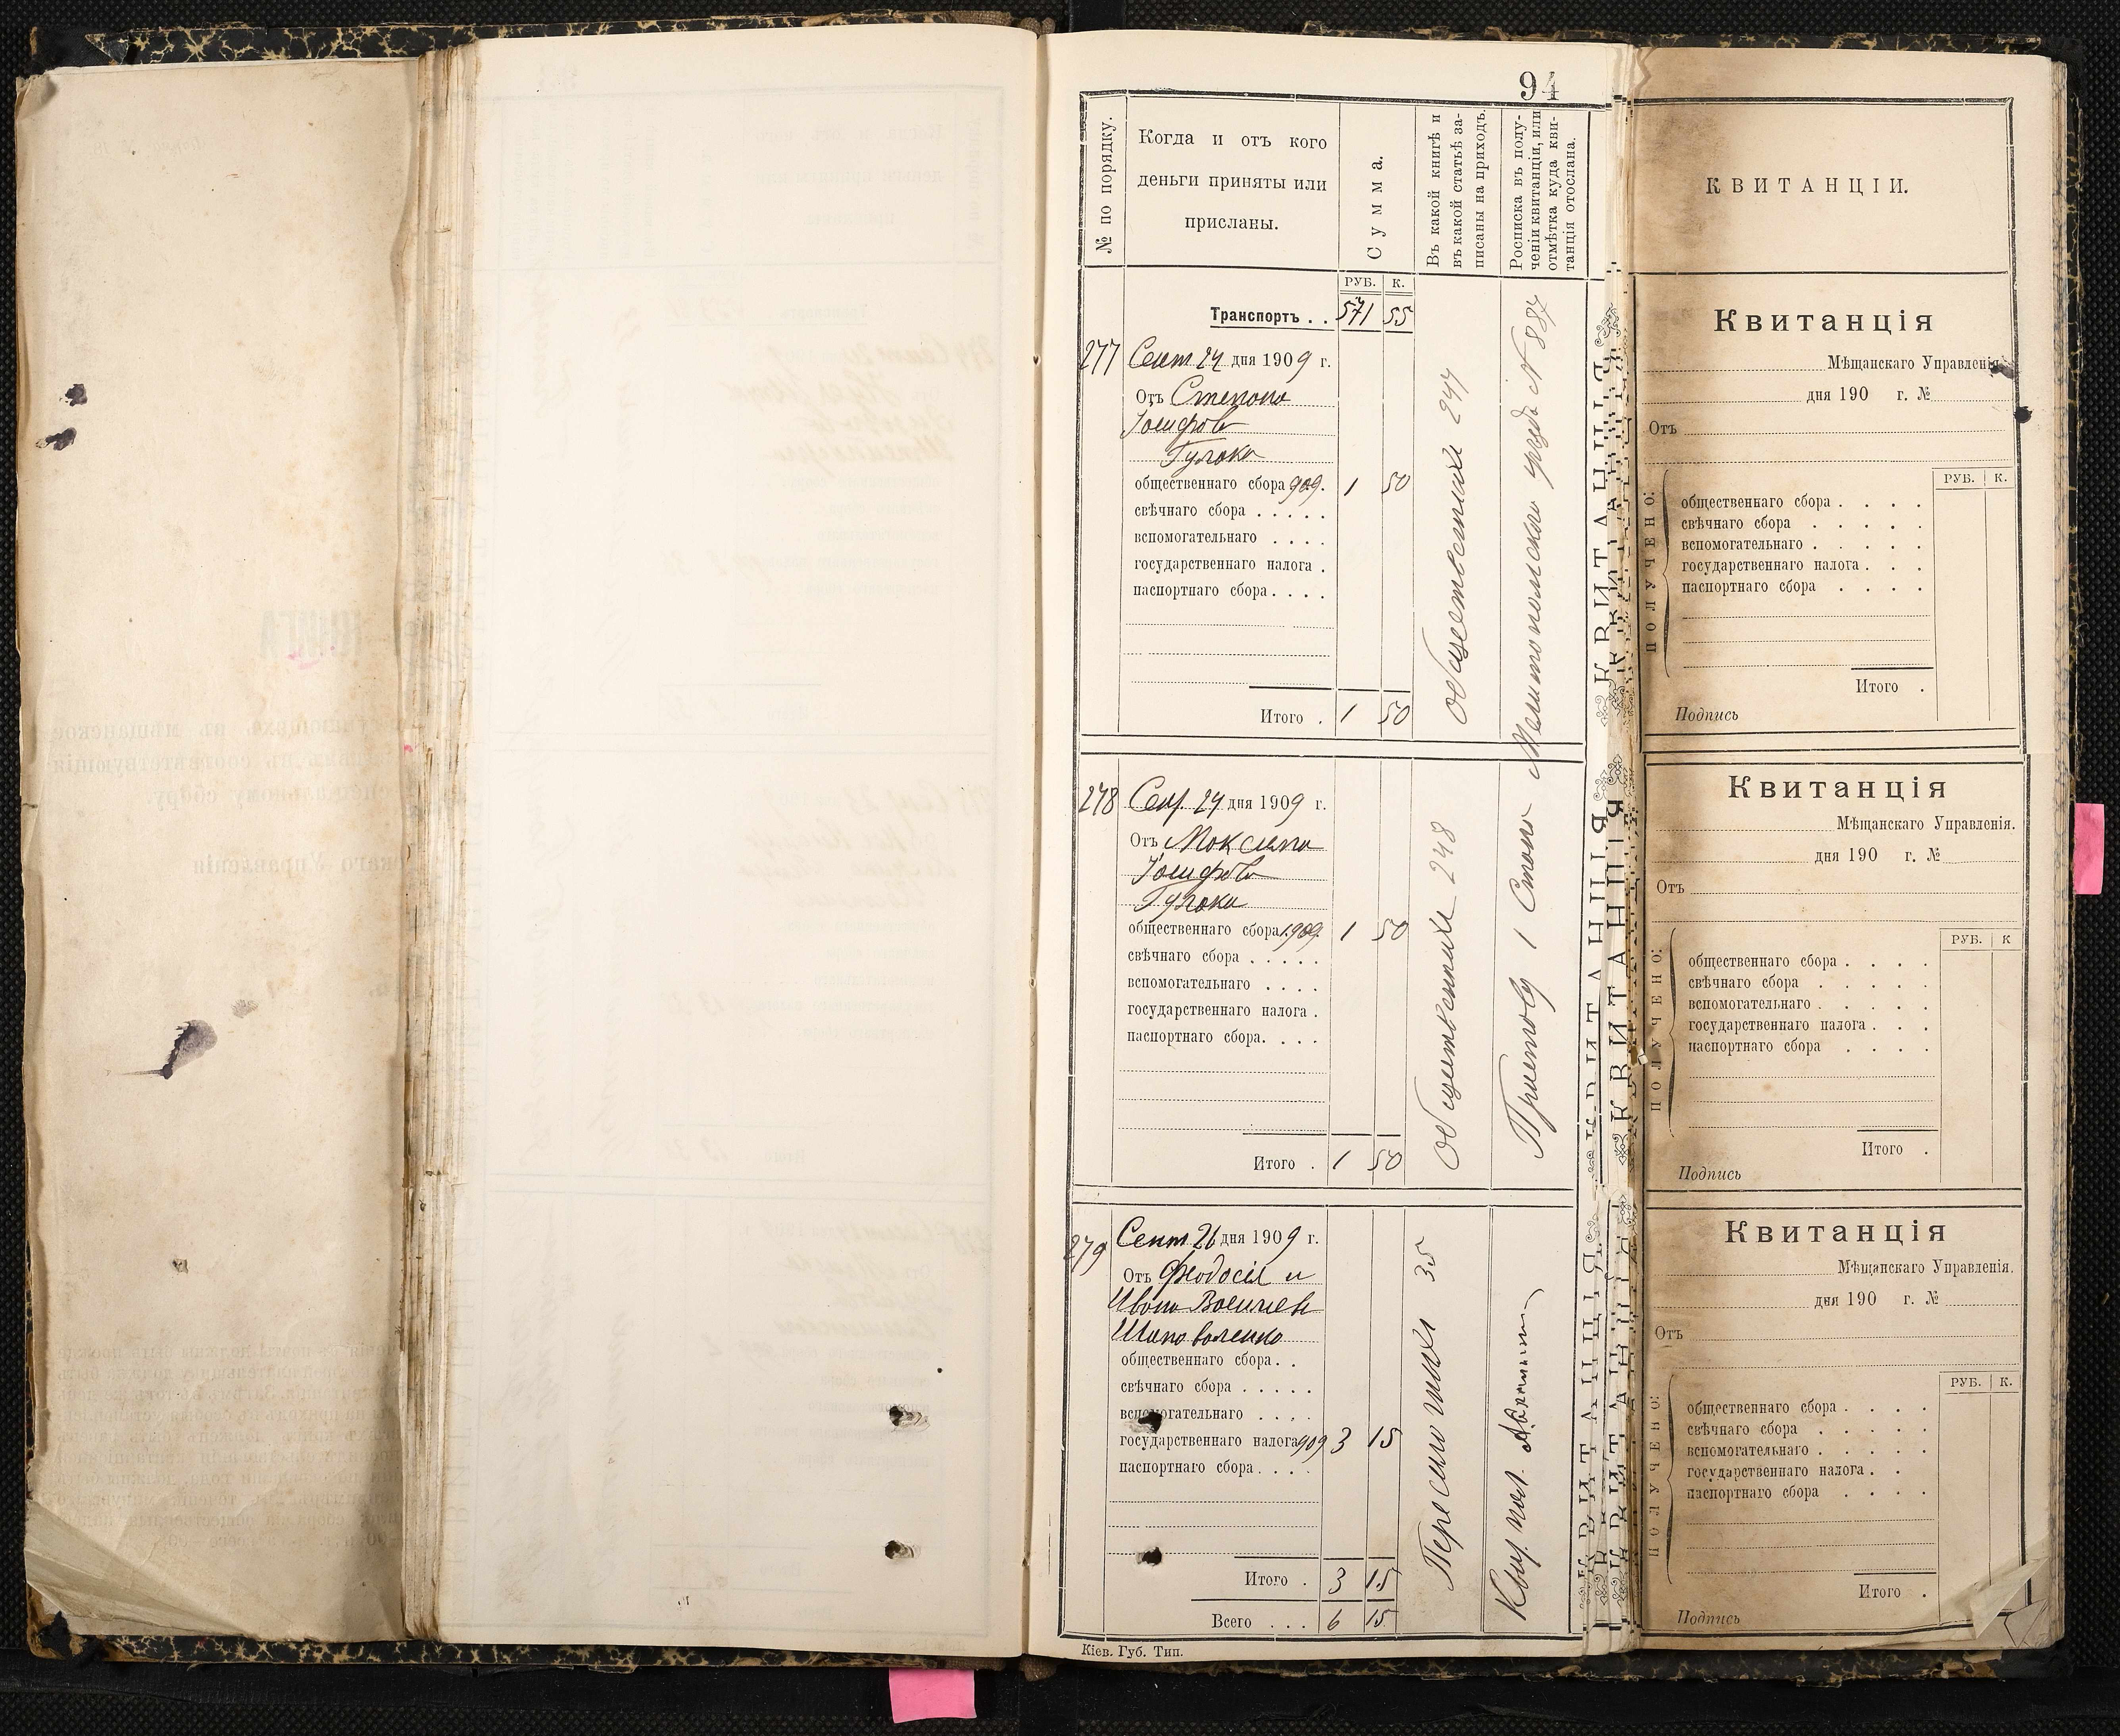 94
№ по порядку.
Когда и отъ кого
деньги приняты или
присланы.
Сумма.
Въ какой книгѣ и
въ какой статьѣ за-
писаны на приходъ.
Росписка въ полу-
ченіи квитанціи, или
отмѣтка куда кви-
танція отослана.
РУБ. К.
Транспортъ . . 571 55
277 Сент 24 дня 1909 г.
Отъ Степана
Іосифов
Гулака
общественнаго сбора 909. 1 50
свѣчнаго сбора . . . . .
вспомогательнаго . . . .
государственнаго налога .
паспортнаго сбора . . . .
Итого . 1 50
общественных 247
278 Сен. 24 дня 1909 г.
Отъ Максима
Іосифов
Гулака
общественнаго сбора 1909. 1 50
свѣчнаго сбора . . . . .
вспомогательнаго . . . .
государственнаго налога .
паспортнаго сбора. . . .
Итого . 1 50
общественных 248
Приставу 1 Стана Мелитопольского уезда N 887
279 Сент 26 дня 1909 г.
Отъ Феодосія и
Ивана
Шаповаленко
общественнаго сбора . .
свѣчнаго сбора . . . . .
вспомогательнаго . . . .
государственнаго налога 909 3 15
паспортнаго сбора . . . .
Итого . 3 15
Всего . . . 6 15
35
Квит. пол.
Кіев. Губ. Тип.
КВИТАНЦІЯ
КВИТАНЦІЯ
КВИТАНЦІЯ
КВИТАНЦІИ.
Квитанція
Мѣщанскаго Управленія.
дня 190 г. №
Отъ
РУБ. К.
ПОЛУЧЕНО:
общественнаго сбора . . . .
свѣчнаго сбора . . . . .
вспомогательнаго . . . . .
государственнаго налога . . .
паспортнаго сбора . . . .
Итого .
Подпись
Квитанція
Мѣщанскаго Управленія.
дня 190 г. №
Отъ
РУБ. К
ПОЛУЧЕНО:
общественнаго сбора . . . .
свѣчнаго сбора . . . . .
вспомогательнаго . . . . .
государственнаго налога . . .
паспортнаго сбора . . . .
Итого .
Подпись
Квитанція
Мѣщанскаго Управленія.
дня 190 г. №
Отъ
РУБ. К.
ПОЛУЧЕНО:
общественнаго сбора . . . .
свѣчнаго сбора . . . . .
вспомогательнаго . . . . .
государственнаго налога . .
паспортнаго сбора . . . .
Итого .
Подпись